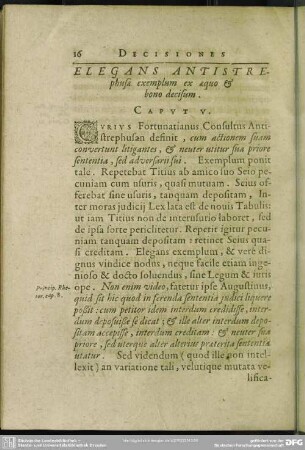 16 DECISIONES
ELEGANS ANTISTRE-
phusâ exemplum ex æquo &
bono decisum.
CAPUT V.
CURIUS Fortunatianus Consultus Anti-
strephusan definit, cum actionem suam
convertunt litigantes, & neuter utitur sua priore
sententia, sed adversarii sui. Exemplum ponit
tale. Repetebat Titius ab amico suo Seio pe-
cuniam cum usuris, quasi mutuam. Seius of-
ferebat sine usuris, tanquam depositam. In-
ter moras judicij Lex lata est de novis Tabulis:
ut iam Titius non de interusurio laboret, sed
de ipsa sorte periclitetur. Repetit igitur pecu-
niam tanquam depositam: retinet Seius qua-
si creditam. Elegans exemplum, & verè di-
gnus vindice nodus, neque facile etiam inge-
nioso & docto soluendus, sine Legum & iuris
ope. Non enim video, fatetur ipse Augustinus,
Princip. Rhe-
tor. cap. 9.
quid sit hic quod in ferenda sententia judici liquere
possit: cum petitor idem interdum credidisse, inter-
dum deposuisse se dicat; & ille alter interdum depo-
sitam accepisse, interdum creditam: & neuter sua
priore, sed uterque alter alterius præterita sententia
utatur. Sed videndum (quod ille non intel-
lexit) an variatione tali, velutique mutata ve-
lifica-